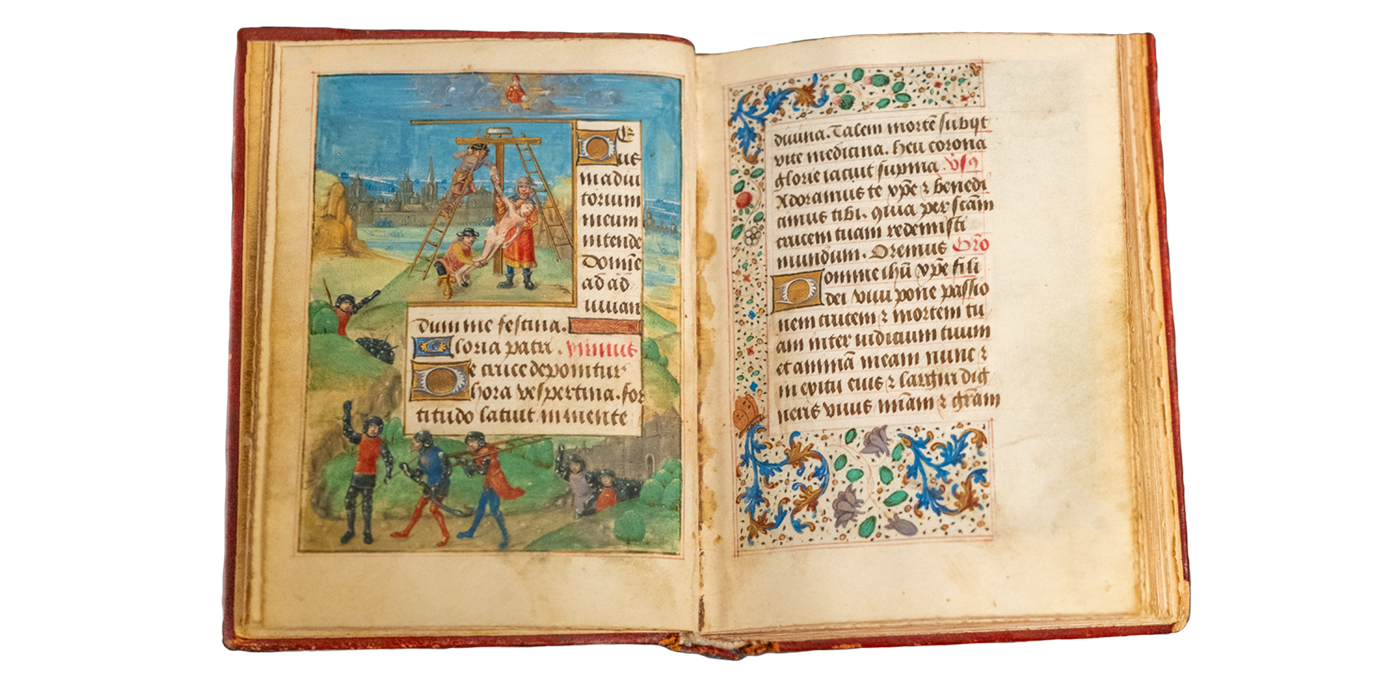 Deus
in adiu
torium
meum
intende
Domīe
ad ad
iuuan
dum me festina.
Gloria patri . ympnus
De cruce deponitur
hora vespertina. for
titudo latuit in mente
diuina. Talem mortē subijt
vite medicina. heu corona
glorie iacuit supina. Vsꝯ
Adoramus te xp̄e ⁊ benedi
cimus tibi. quia per scām
crucem tuam redemisti
mundum. Oremus Oro
Domine ihū xp̄e fili
dei viui pone passio
nem crucem ⁊ mortem tu
am inter iudicium tuum
et animā meam nunc ⁊
in exitu eius ⁊ largiri dig
neris viuis miām ⁊ grām